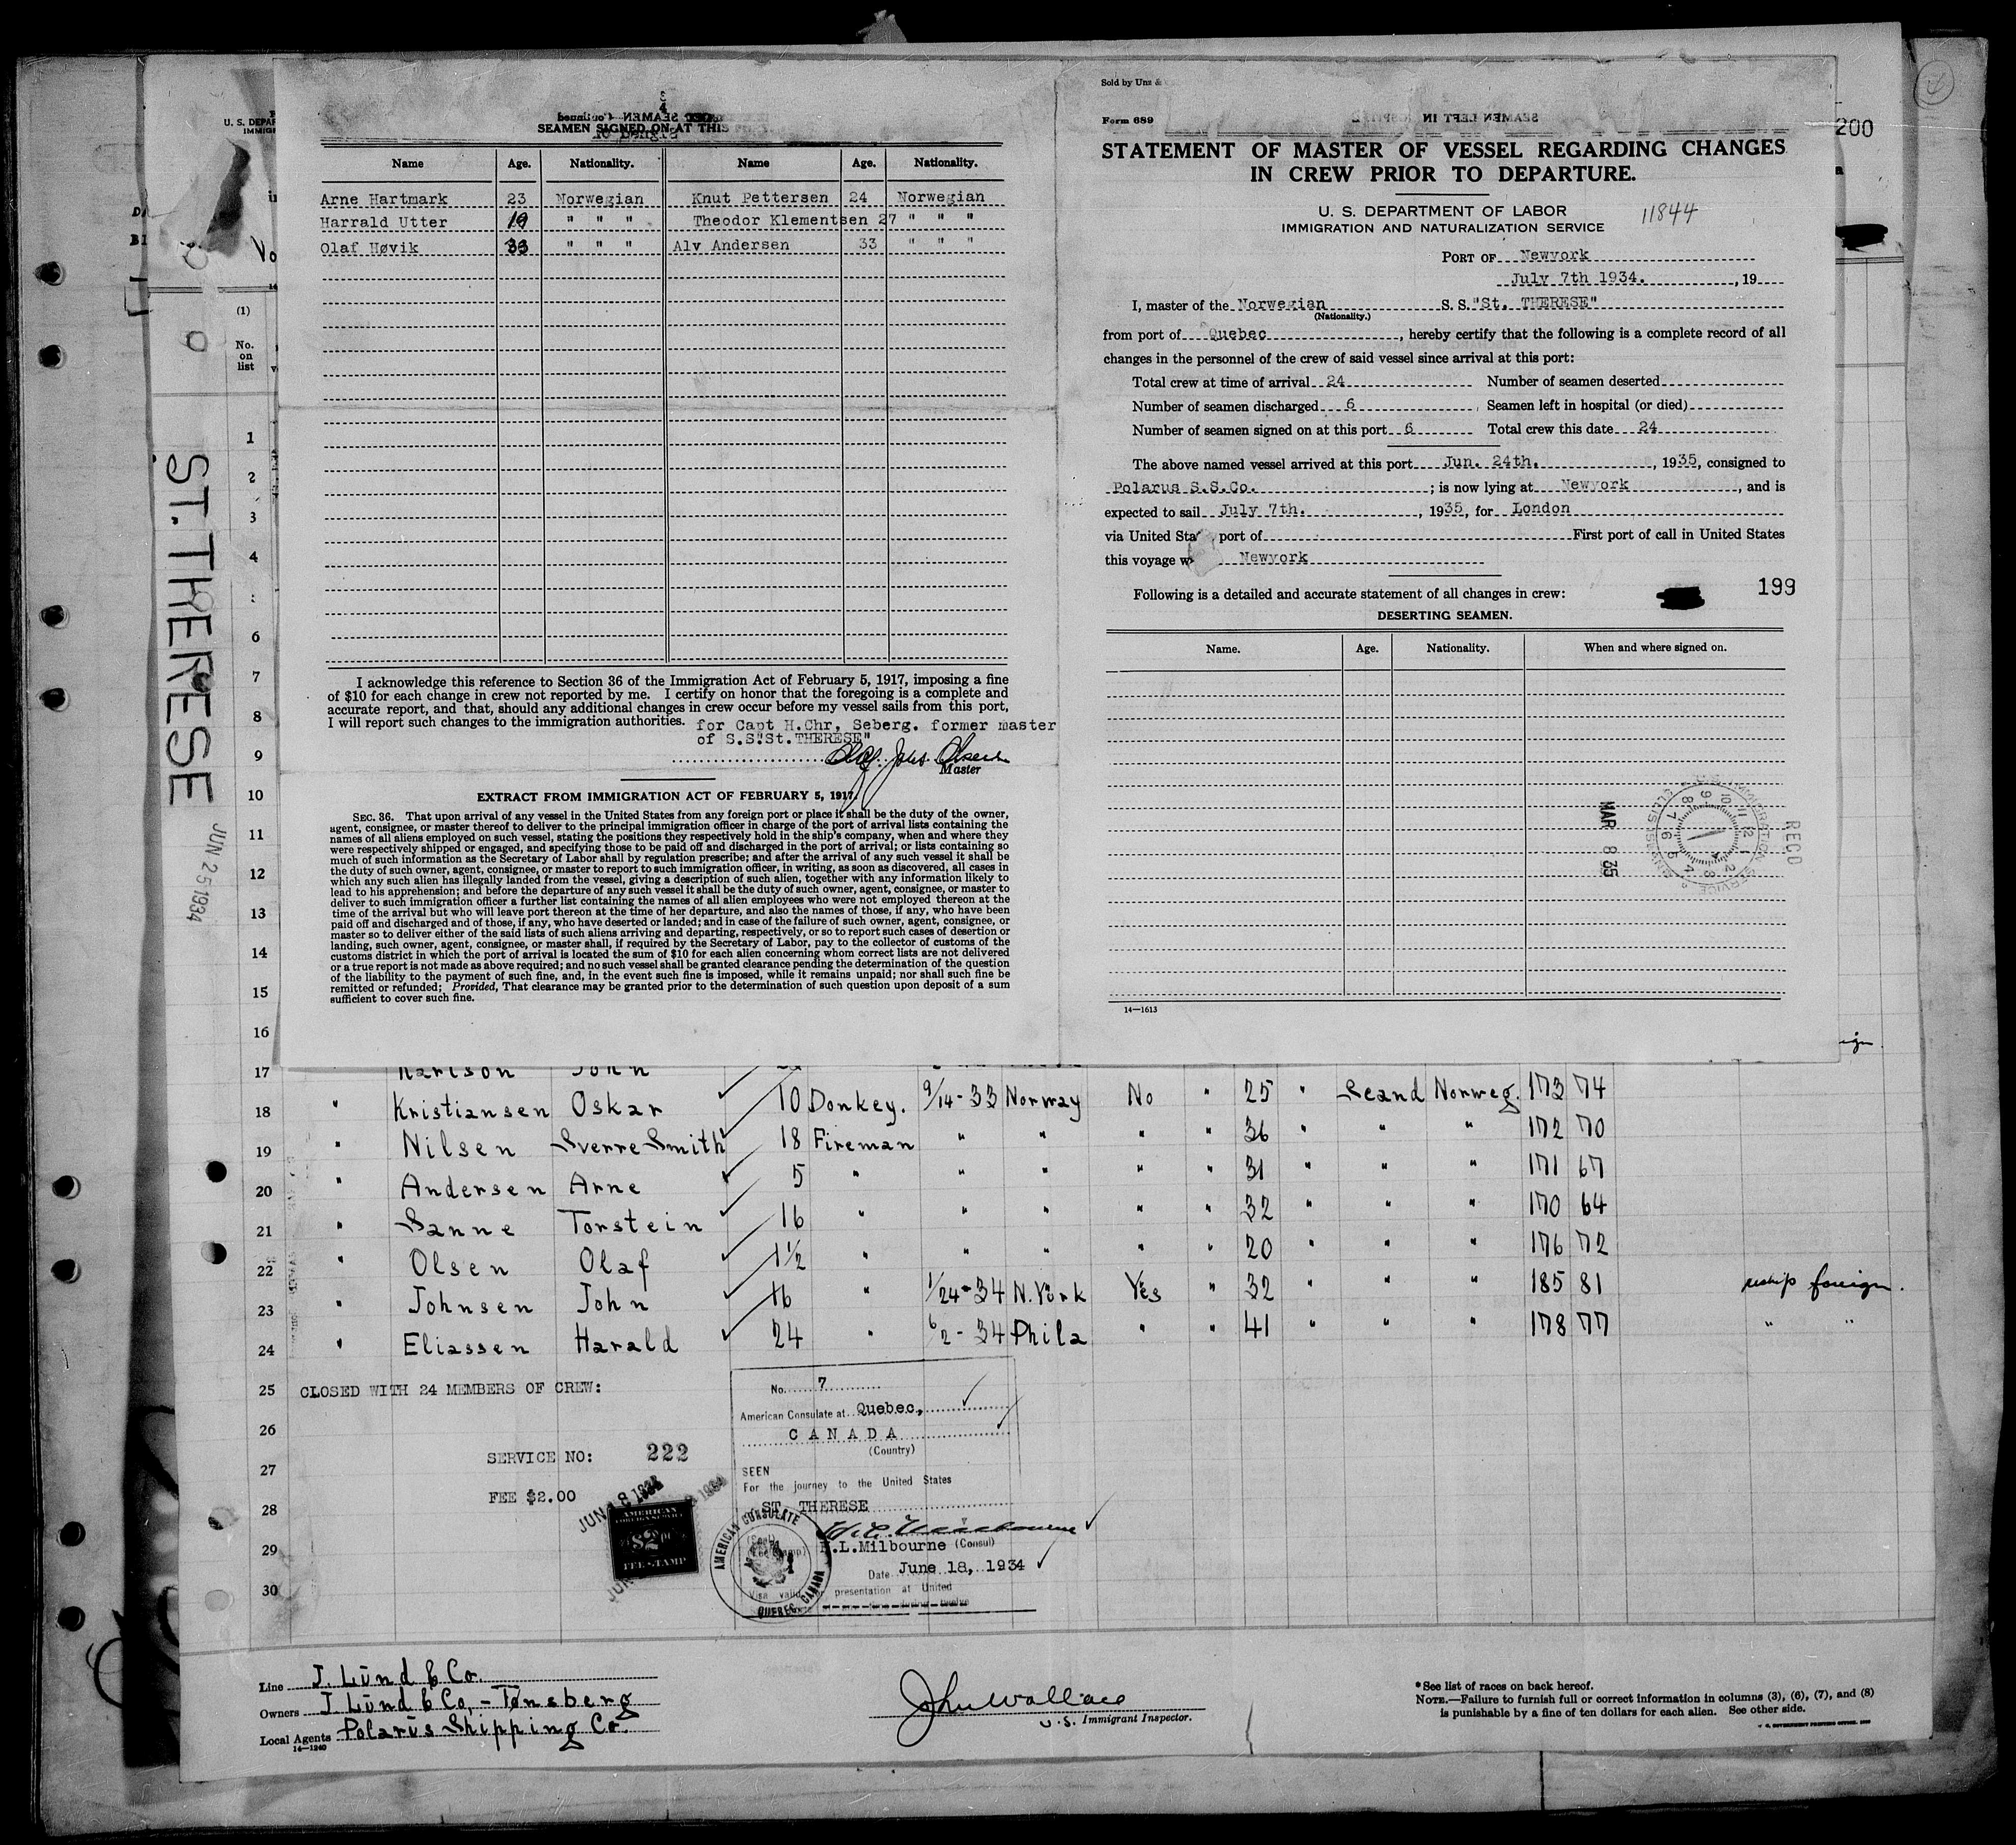 200
SEAMEN SIGNED ON AT THIS
Name Age. Nationality. Name Age. Nationality.
Arne Hartmark 23 Norwegian Knut Pettersen 24 Norwegian
Harrald Utter 19 " " " Theodor Klementsen 27 " " "
Olaf Høvik 33 " " " Alv Andersen 33 " " "
I acknowledge this reference to Section 36 of the Immigration Act of February 5, 1917, imposing a fine
of $10 for each change in crew not reported by me. I certify on honor that the foregoing is a complete and
accurate report, and that, should any additional changes in crew occur before my vessel sails from this port,
I will report such changes to the immigration authorities.
for Capt H.Chr, Seberg. former master
of S.S"St.THERESE"
Master
EXTRACT FROM IMMIGRATION ACT OF FEBRUARY 5, 1917.
SEC. 36. That upon arrival of any vessel in the United States from any foreign port or place it shall be the duty of the owner,
agent, consignee, or master thereof to deliver to the principal immigration officer in charge of the port of arrival lists containing the
names of all aliens employed on such vessel, stating the positions they respectively hold in the ship's company, when and where they
were respectively shipped or engaged, and specifying those to be paid off and discharged in the port of arrival; or lists containing so
much of such information as the Secretary of Labor shall by regulation prescribe; and after the arrival of any such vessel it shall be
the duty of such owner, agent, consignee, or master to report to such immigration officer, in writing, as soon as discovered, all cases in
which any such alien has illegally landed from the vessel, giving a description of such alien, together with any information likely to
lead to his apprehension; and before the departure of any such vessel it shall be the duty of such owner, agent, consignee, or master to
deliver to such immigration officer a further list containing the names of all alien employees who were not employed thereon at the
time of the arrival but who will leave port thereon at the time of her departure, and also the names of those, if any, who have been
paid off and discharged and of those, if any, who have deserted or landed; and in case of the failure of such owner, agent, consignee, or
master so to deliver either of the said lists of such aliens arriving and departing, respectively, or so to report such cases of desertion or
landing, such owner, agent, consignee, or master shall, if required by the Secretary of Labor, pay to the collector of customs of the
customs district in which the port of arrival is located the sum of $10 for each alien concerning whom correct lists are not delivered
or a true report is not made as above required; and no such vessel shall be granted clearance pending the determination of the question
of the liability to the payment of such fine, and, in the event such fine is imposed, while it remains unpaid; nor shall such fine be
remitted or refunded; Provided, That clearance may be granted prior to the determination of such question upon deposit of a sum
sufficient to cover such fine.
Sold by Unz &
Form 689
STATEMENT OF MASTER OF VESSEL REGARDING CHANGES
IN CREW PRIOR TO DEPARTURE.
U. S. DEPARTMENT OF LABOR
IMMIGRATION AND NATURALIZATION SERVICE
11844
PORT OF Newyork
July 7th 1934. , 19
I, master of the Norwegian S. S. "St. THERESE"
(Nationality.)
from port of Quebec , hereby certify that the following is a complete record of all
changes in the personnel of the crew of said vessel since arrival at this port:
Total crew at time of arrival 24 Number of seamen deserted
Number of seamen discharged 6 Seamen left in hospital (or died)
Number of seamen signed on at this port 6 Total crew this date 24
The above named vessel arrived at this port Jun. 24th. , 1935, consigned to
Polarus S.S.Co. ; is now lying at Newyork , and is
expected to sail July 7th. , 1935, for London
via United Sta port of First port of call in United States
this voyage w Newyork
Following is a detailed and accurate statement of all changes in crew:
199
DESERTING SEAMEN.
Name. Age. Nationality. When and where signed on.
MAR 8 35
RECD
14—1613
ST. THERESE
JUN 25 1934
(1)
No.
on
list
1
2
3
4
6
7
8
9
10
11
12
13
14
15
16
17 " Karlson John
18 " Kristiansen Oskar 10 Donkey. 9/14-33 Norway No " 25 " Scand Norweg. 173 74
19 " Nilsen Sverre Smith 18 Fireman " " " " 36 " " " 172 70
20 " Andersen Arne 5 " " " " " 31 " " " 171 67
21 " Sanne Torstein 16 " " " " " 32 " " " 170 64
22 " Olsen Olaf 1½ " " " " " 20 " " " 176 72
23 " Johnsen John 16 " 1/24-34 N.York Yes " 32 " " " 185 81 reship foreign.
24 " Eliassen Harald 24 " 6/2-34 Phila " " 41 " " " 178 77 " "
25 CLOSED WITH 24 MEMBERS OF CREW:
26
27
28
29
30
SERVICE NO: 222
FEE $2.00
JUN 18 1934
AMERICAN
FOREIGN SERVICE
$2
FEE STAMP
No. 7
American Consulate at Quebec,
CANADA
(Country)
SEEN
For the journey to the United States
ST. THERESE
H.L.Milbourne (Consul)
Date June 18, 1934
presentation at United
AMERICAN CONSULATE
QUEBEC, CANADA
Line J. Lund & Co.
Owners J Lund & Co, - Tønsberg
Local Agents Polarus Shipping Co.
14—1240
John Wallace
U.S. Immigrant Inspector.
*See list of races on back hereof.
NOTE.—Failure to furnish full or correct information in columns (3), (6), (7), and (8)
is punishable by a fine of ten dollars for each alien. See other side.